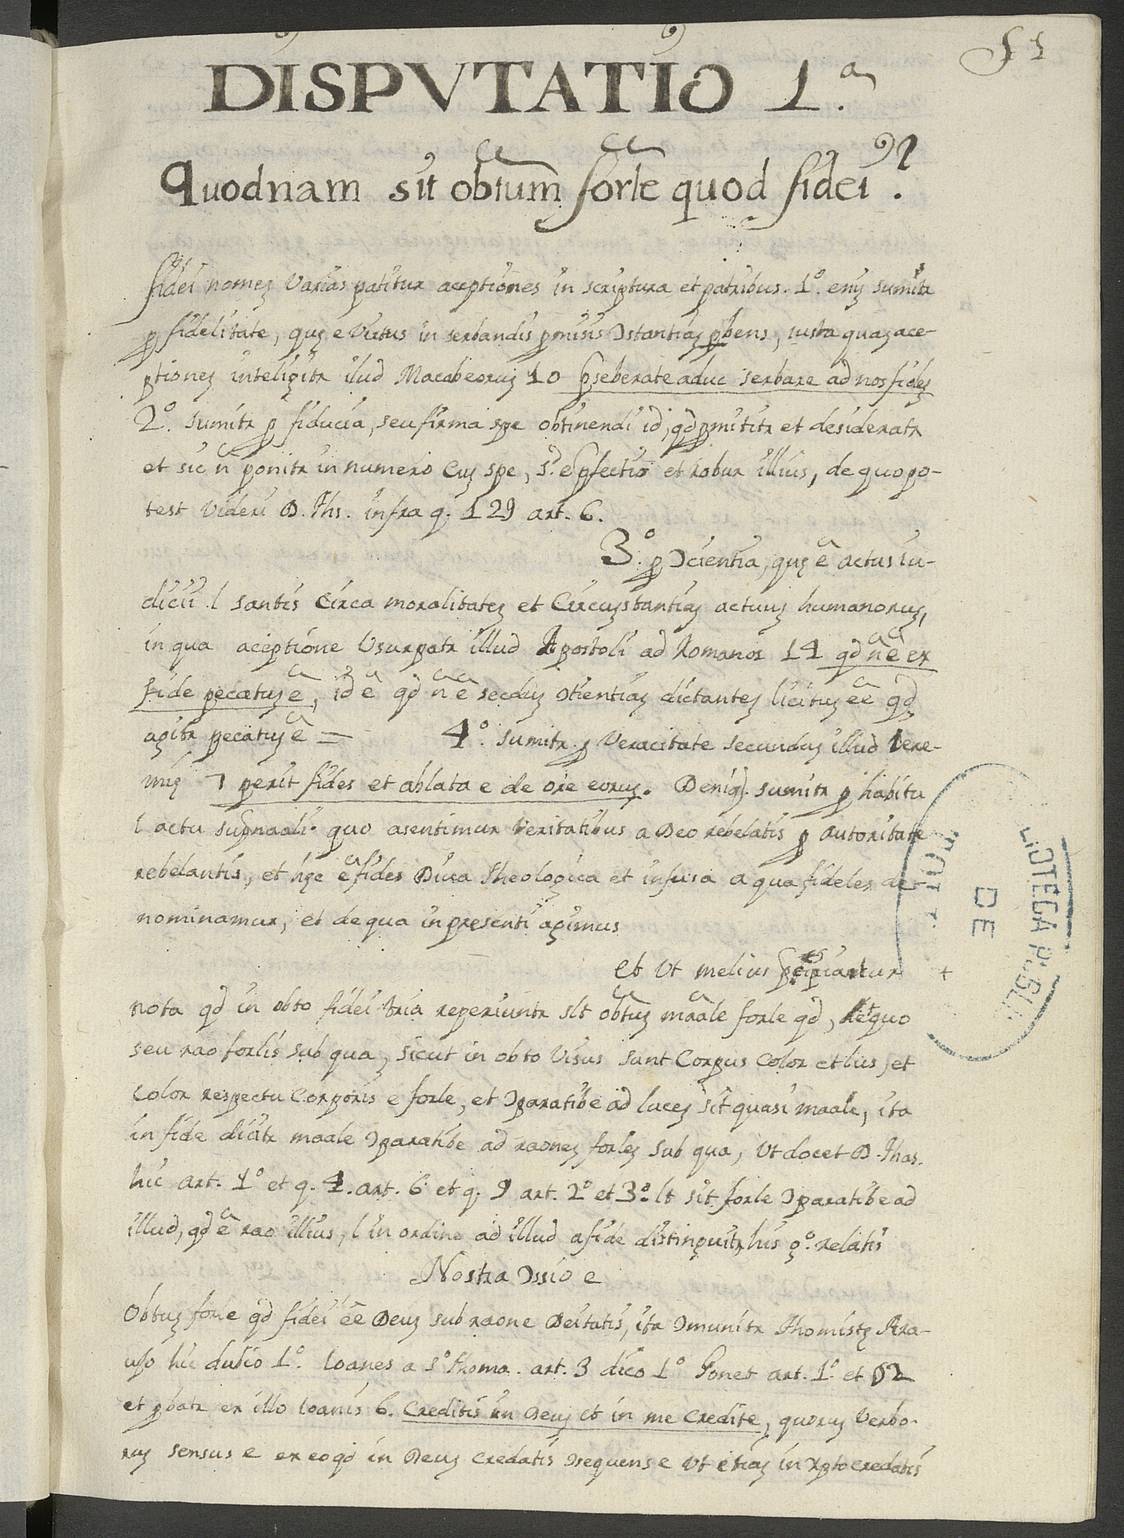 51
DISPVTATIO 1.ª
Quodnam sit obtum forle quod fidei?
fidei nomeʒ varias patitur aceptiones in scriptura et patribus. 1º. eniʒ sumitr
p fidelitate, quʒ e virtus in serbandis pmisis Ɔstantiaʒ pbens, iusta quaʒ ace-
ptioneʒ inteligitr ilud Macabeoruʒ 10 pseberate aduc serbare ad nos fideʒ
2º. sumitr p fiducia, seu firma spe obtinendi id, qd pmititr et desideratr
et sic ñ ponitr in numero cuʒ spe, sʳ. e pfectio et robur illius, de quo po-
test videri D. Ths. infra q. 129 art. 6.
3º. p Ɔcientia, quʒ ẽ actus iu-
dicii l santis circa moralitateʒ et circuʒstantiaʒ actuuʒ humanoruʒ,
in qua aceptione Usurpatr illud Apostoli ad Romanos 14 qd ñ ẽ ex
fide pecatuʒ ẽ, id ẽ qd ñ ẽ secduʒ Ɔtientiaʒ dictanteʒ licituʒ ẽẽ qd
agitr pecatuʒ ẽ = 4º. sumitr p veracitate secunduʒ illud Iere-
miʒ 7 periit fides et ablata e de ore eoruʒ. Deniq. sumitr p habitu
l actu supnaali quo asentimur veritatibus a Deo rebelatis p autoritate
rebelantis, et hʒc ẽ fides Diva theologica et infusa a qua fideles de-
nominamur, et de qua in presenti agimus
et ut melius
nota qd in obto fidei tria reperiuntr slt obtuʒ maale forle qd, et quo
seu rao forlis sub qua, sicut in obto visus sunt corpus color et lus, et
color respectu corporis e forle, et Ɔparatibe ad luceʒ sit quasi maale, ita
in fide dicitr maale Ɔparatibe ad raoneʒ forleʒ sub qua, ut docet D. Thas.
hic art. 1º et q. 4. art. 6 et q. 9 art. 2º et 3º. lt sit forle Ɔparatibe ad
illud, qd ẽ rao illius, l in ordine ad illud a fide distinguitr, his gº. relatis
Nostra Ɔssio e
Obtuʒ forle qd fidei ẽẽ Deuʒ sub raone Deitatis, ita Ɔmunitr thomistʒ Ara-
ujo hic dubio 1º. Ioanes a sº thoma. art. 3 dico 1º Gonet art. 1º. et
et pbatr ex illo Ioanis 6. Creditis in Deuʒ et in me credite, quoruʒ verbo-
ruʒ sensus e ex eo qd in Deuʒ credatis Ɔsequens e ut etiaʒ in xpto credatis
LIOTECA PUBL
DE